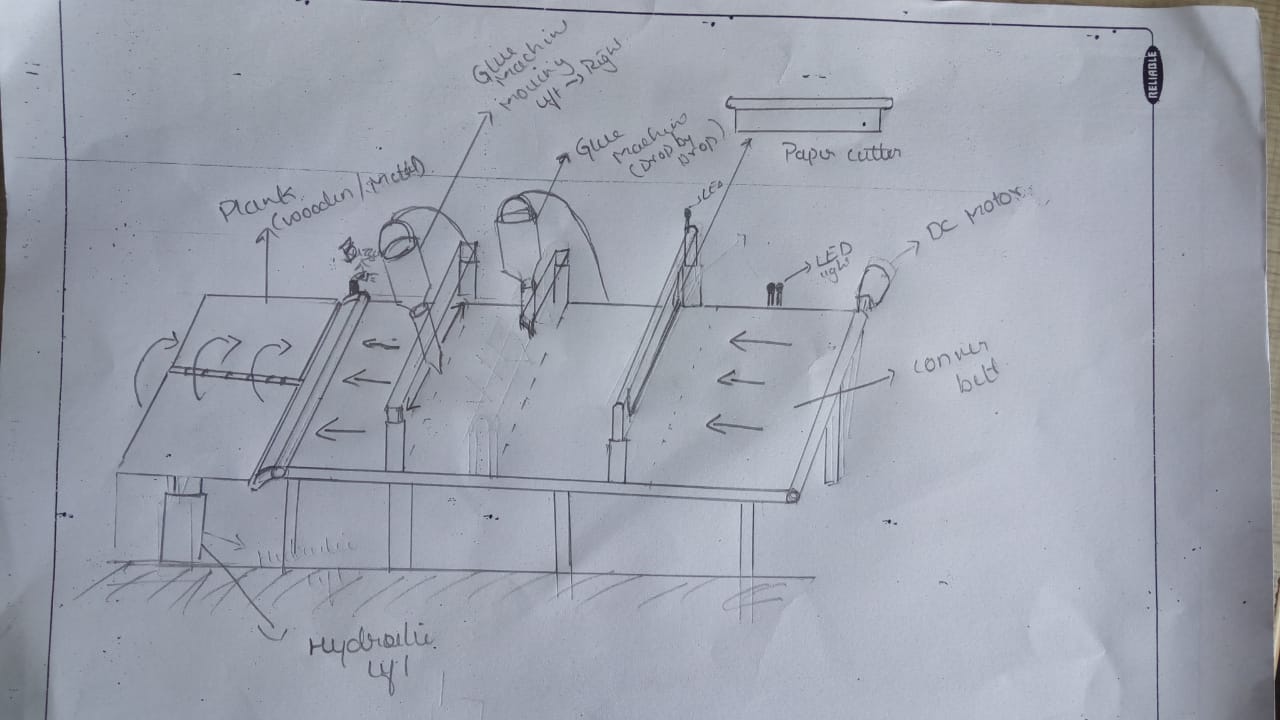 RELIABLE
Glue
Machin
Moving
Lft → Right
Glue
Machin
(Drop by
Drop)
Paper cutter
Plank
(wooden / Metal)
LED
LED
light
DC Motor
conver
belt
Hydraulic
Lift
Hydraulic
Lft